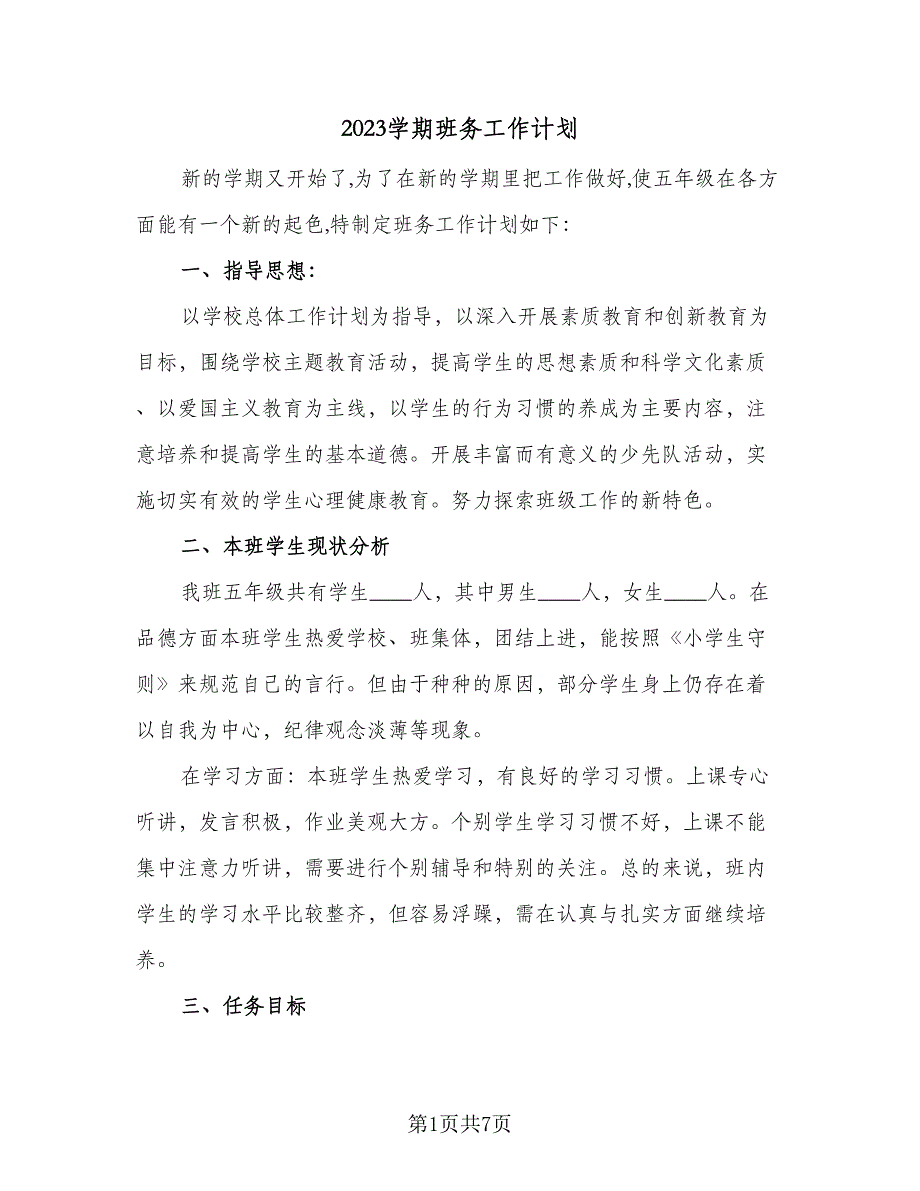 2023学期班务工作计划
新的学期又开始了,为了在新的学期里把工作做好,使五年级在各方
面能有一个新的起色,特制定班务工作计划如下：
一、指导思想：
以学校总体工作计划为指导，以深入开展素质教育和创新教育为
目标，围绕学校主题教育活动，提高学生的思想素质和科学文化素质
、以爱国主义教育为主线，以学生的行为习惯的养成为主要内容，注
意培养和提高学生的基本道德。开展丰富而有意义的少先队活动，实
施切实有效的学生心理健康教育。努力探索班级工作的新特色。
二、本班学生现状分析
我班五年级共有学生____人，其中男生____人，女生____人。在
品德方面本班学生热爱学校、班集体，团结上进，能按照《小学生守
则》来规范自己的言行。但由于种种的原因，部分学生身上仍存在着
以自我为中心，纪律观念淡薄等现象。
在学习方面：本班学生热爱学习，有良好的学习习惯。上课专心
听讲，发言积极，作业美观大方。个别学生学习习惯不好，上课不能
集中注意力听讲，需要进行个别辅导和特别的关注。总的来说，班内
学生的学习水平比较整齐，但容易浮躁，需在认真与扎实方面继续培
养。
三、任务目标
第1页共7页